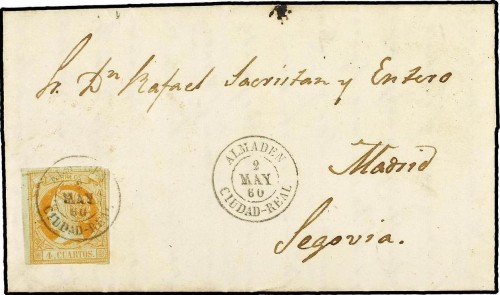 Sr. Dn Rafael Sacristan y Entero
Madrid
Segovia.
ALMADEN
2
MAY
60
CIUDAD-REAL
MAY
60
CIUDAD-REAL
4 CUARTOS.